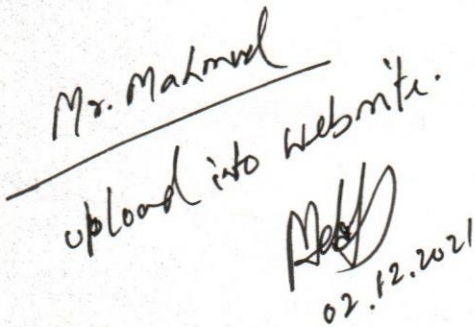 Mr. Mahmud
upload into website.
02.12.2021